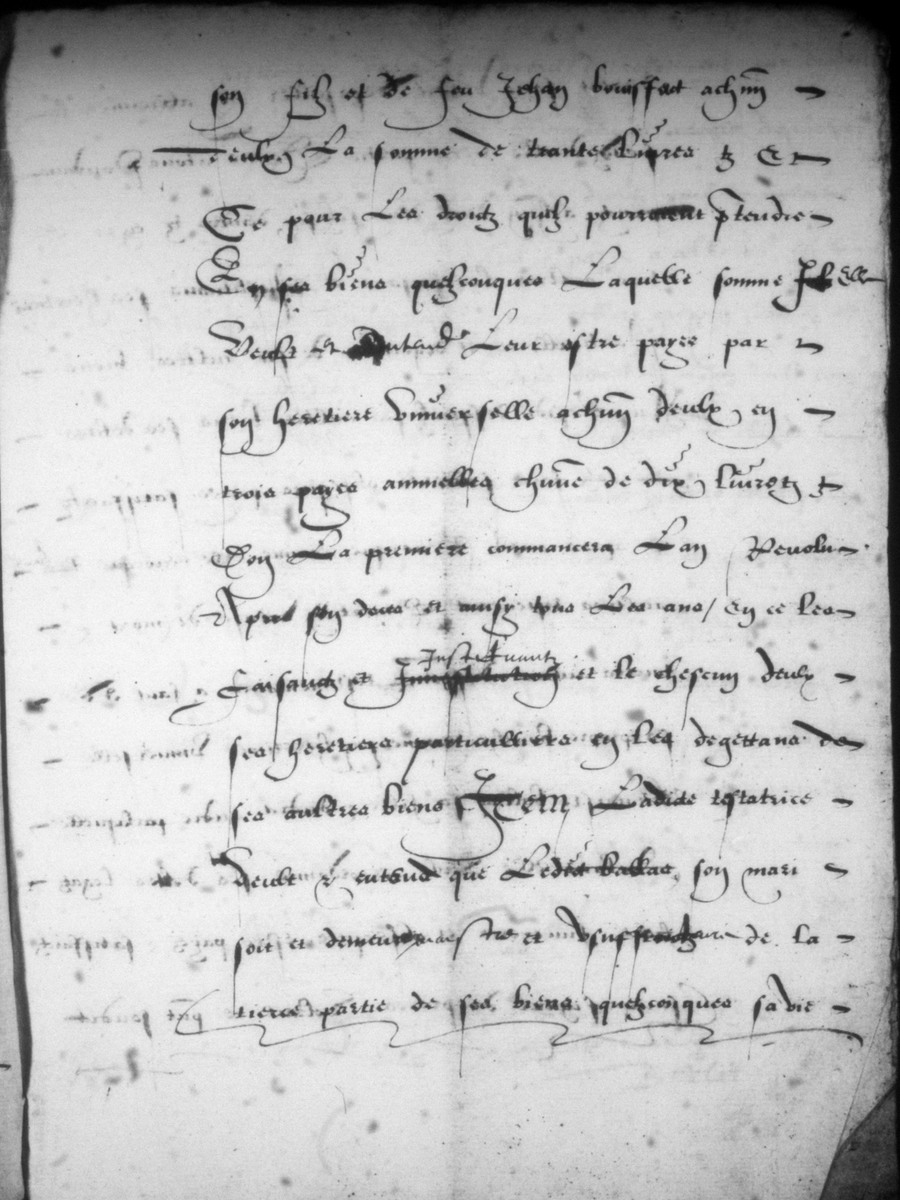 son filz et de feu Jehan bouissat achun
deulx La somme de trante livres tz Et
Ce pour Les droictz quilz pourroient ptendre
En ses biens quelzconques Laquelle somme
Veult et entend Leur estre payee par
son heretiere universelle achun deulx en
trois payes annuelles chune de dix livres tz
Don La premiere commancera Lan Revolu
Apres son deces et ainsy tous Les ans / En ce les
Faisantz et Instituantz et le chescun deulx
ses heretiers particulliers en les degettans de
ses aultres biens Item Ladicte testatrice
Veult et entend que Ledict son mari
soit et demeure maestre et usufructuaire de la
tierce partie de ses biens quelzconques sa vie